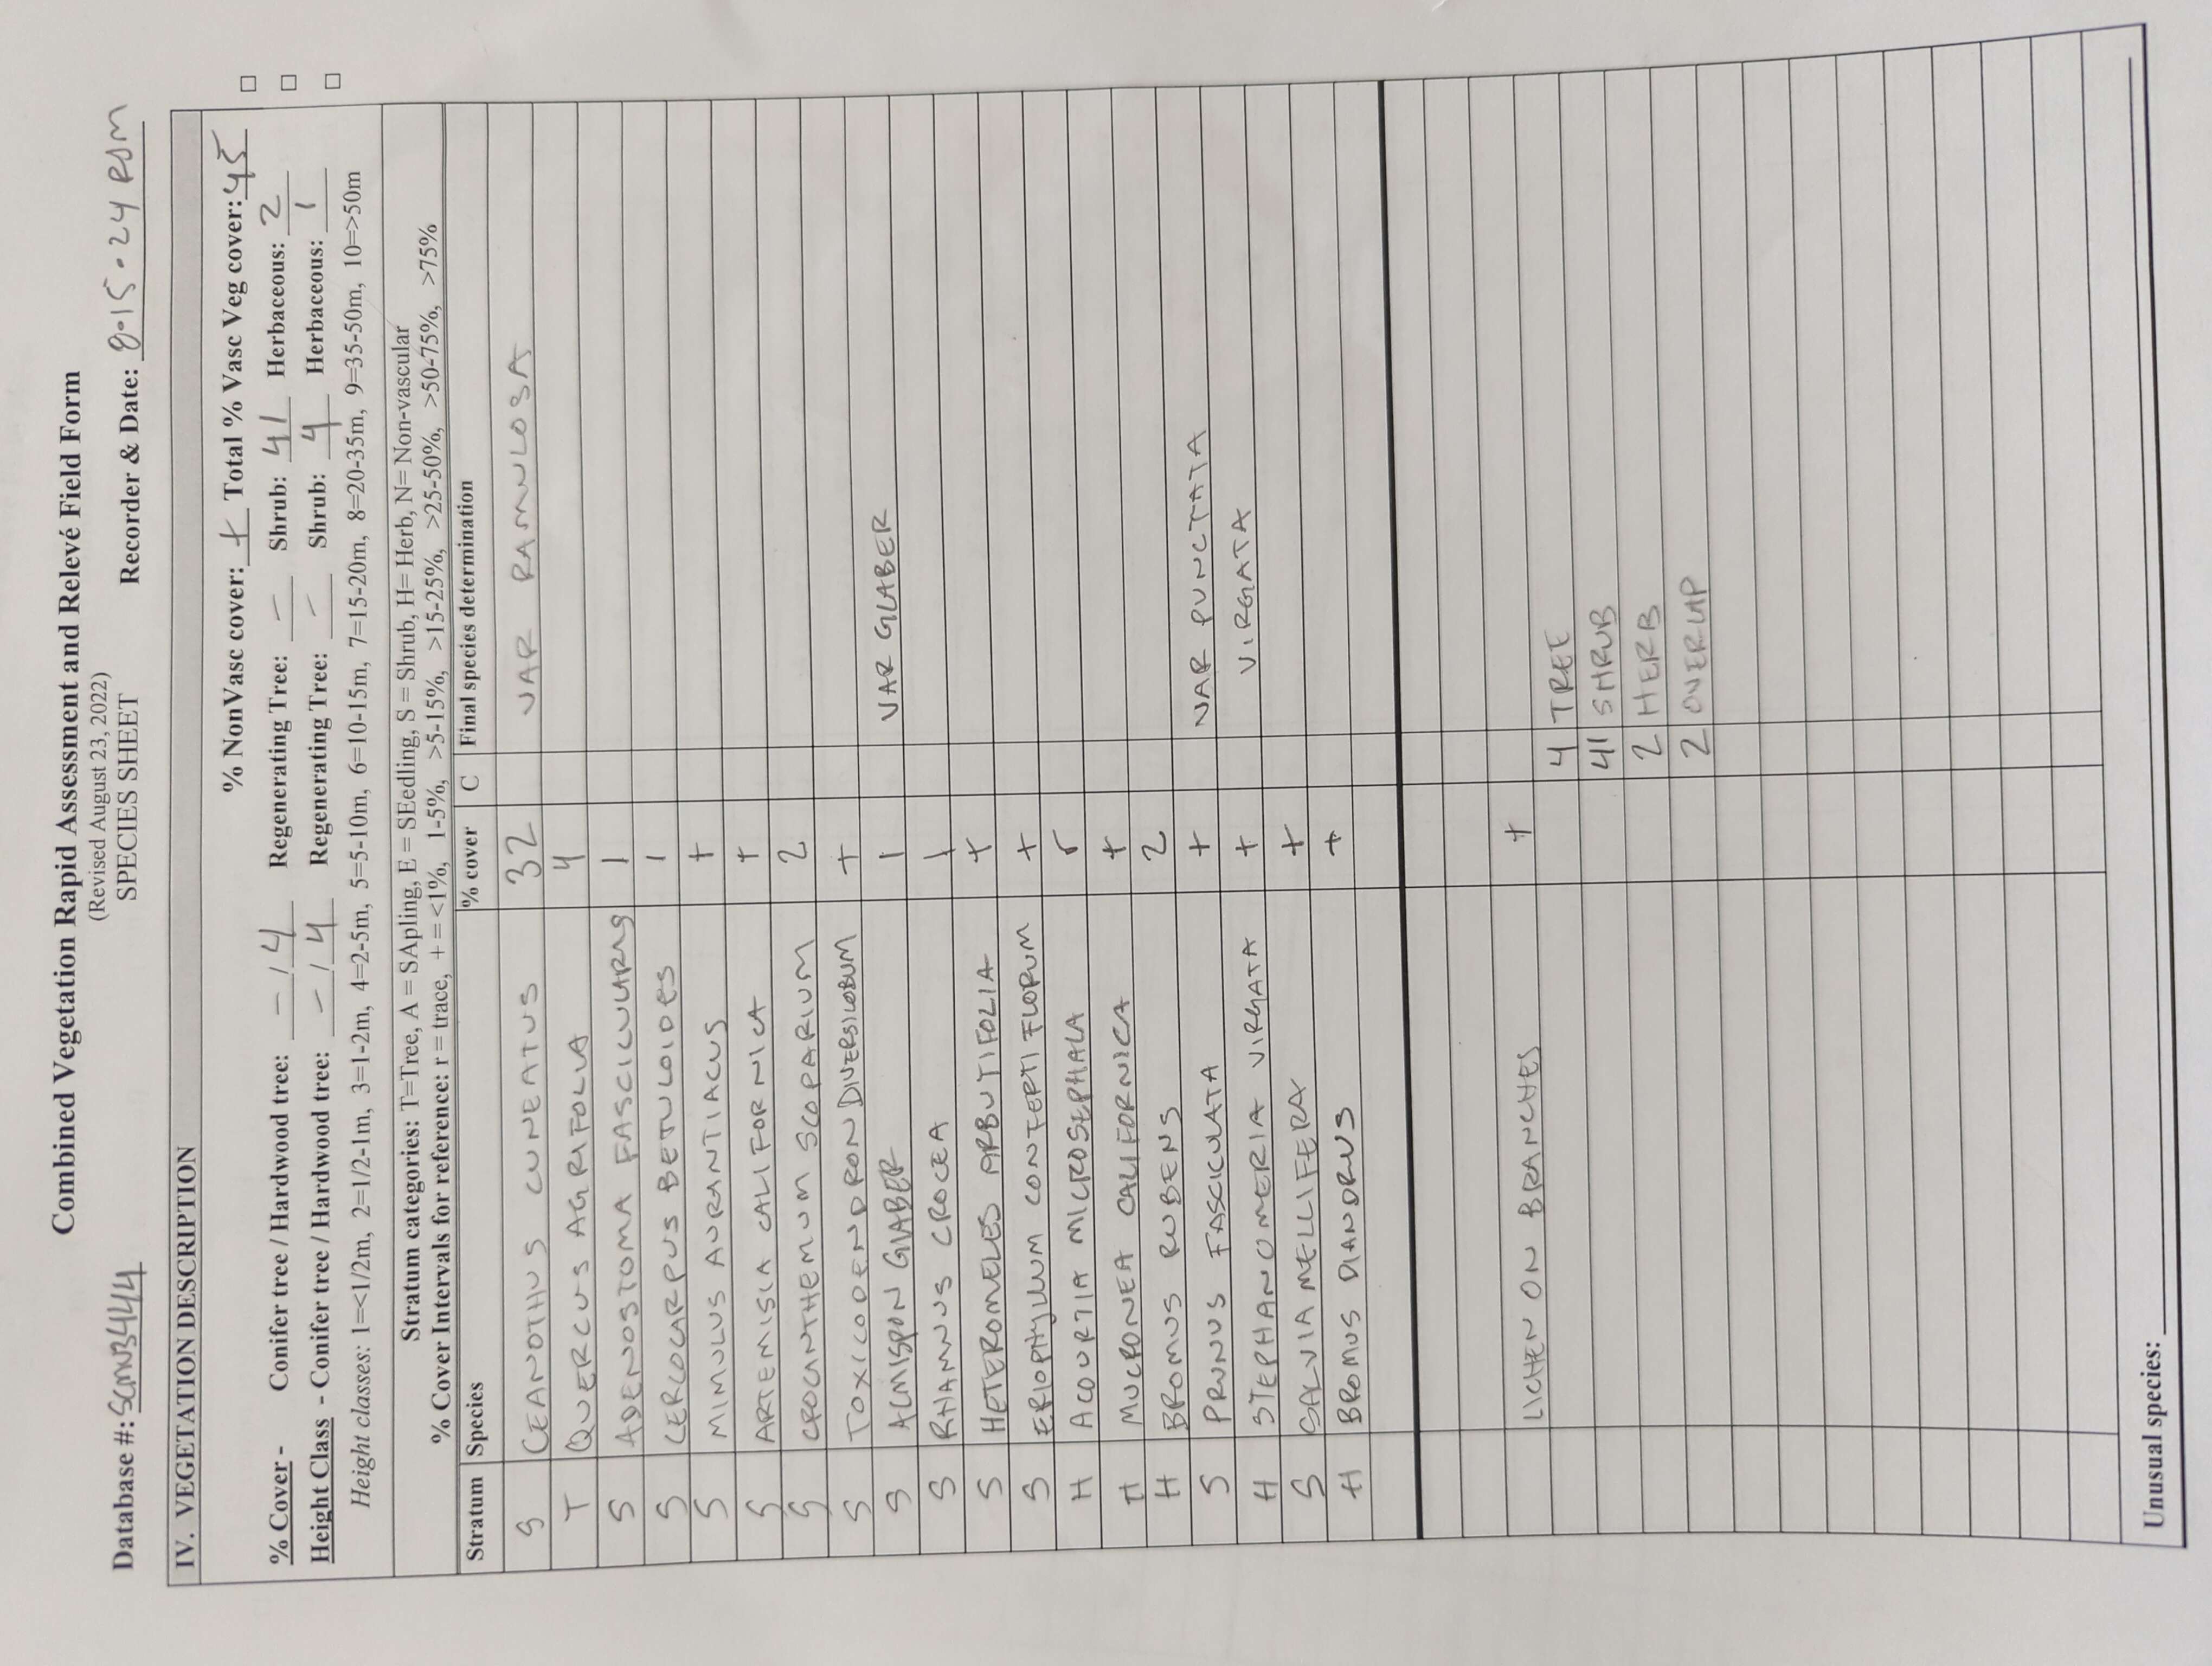 Combined Vegetation Rapid Assessment and Relevé Field Form
(Revised August 23, 2022)
SPECIES SHEET
Database #: SCMB3444 Recorder & Date: 8-15-24 RJM
IV. VEGETATION DESCRIPTION
% NonVasc cover: + Total % Vasc Veg cover: 45
% Cover - Conifer tree / Hardwood tree: - / 4 Regenerating Tree: - Shrub: 41 Herbaceous: 2
Height Class - Conifer tree / Hardwood tree: - / 4 Regenerating Tree: - Shrub: 4 Herbaceous: 1
Height classes: 1=<1/2m, 2=1/2-1m, 3=1-2m, 4=2-5m, 5=5-10m, 6=10-15m, 7=15-20m, 8=20-35m, 9=35-50m, 10=>50m
Stratum categories: T=Tree, A = SApling, E = SEedling, S = Shrub, H= Herb, N= Non-vascular
% Cover Intervals for reference: r = trace, + = <1%, 1-5%, >5-15%, >15-25%, >25-50%, >50-75%, >75%
Stratum Species % cover C Final species determination
S CEANOTHUS CUNEATUS 32 VAR RAMULOSA
T QUERCUS AGRIFOLIA 4
S ADENOSTOMA 1
S CERCOCARPUS BETULOIDES 1
S MIMULUS AURANTIACUS +
S ARTEMISIA CALIFORNICA +
S CROCANTHEMUM SCOPARIUM 2
S TOXICODENDRON DIVERSILOBUM +
S ACMISPON GLABER 1 VAR GLABER
S RHAMNUS CROCEA 1
S HETEROMELES ARBUTIFOLIA +
S ERIOPHYLLUM CONFERTIFLORUM +
H ACOURTIA MICROSEPHALA r
H MUCRONEA CALIFORNICA +
H BROMUS RUBENS 2
S PRUNUS FASCICULATA + VAR PUNCTATA
H STEPHANOMERIA VIRGATA + VIRGATA
S SALVIA MELLIFERA +
H BROMUS DIANDRUS +
LICHEN ON BRANCHES +
4 TREE
41 SHRUB
2 HERB
2 OVERLAP
Unusual species: